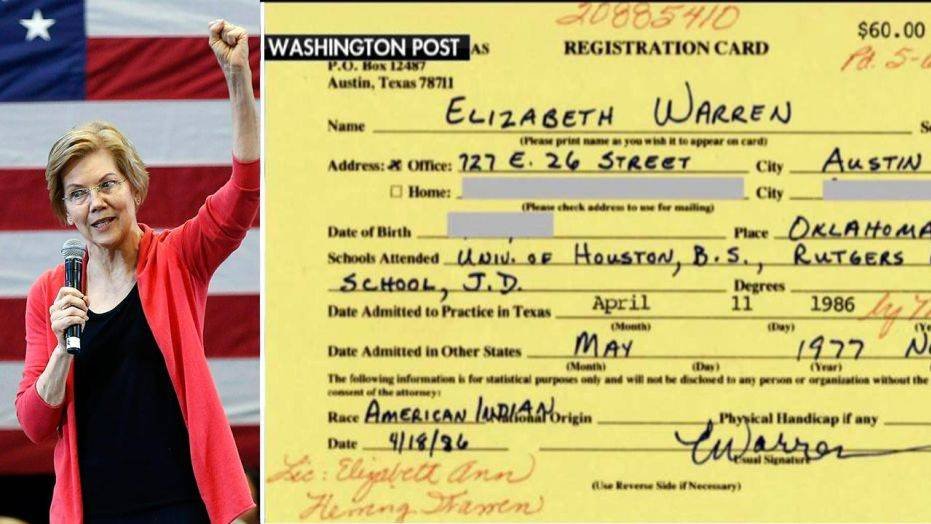 20885410
$60.00
WASHINGTON POST
AS
REGISTRATION CARD
Pd. 5-
P.O. Box 12487
Austin, Texas 78711
Name ELIZABETH WARREN
(Please print name as you wish it to appear on card)
Address: x Office: 727 E. 26 STREET City AUSTIN
☐ Home: City
(Please check address to use for mailing)
Date of Birth Place OKLAHOMA
Schools Attended UNIV. OF HOUSTON, B.S., RUTGERS
SCHOOL, J.D. Degrees
Date Admitted to Practice in Texas April 11 1986
(Month) (Day)
Date Admitted in Other States MAY 1977
(Month) (Day) (Year)
The following information is for statistical purposes only and will not be disclosed to any person or organization without the
consent of the attorney:
Race AMERICAN INDIAN National Origin Physical Handicap if any
Date 4/18/86 EWarren
Usual Signature
Lic: Elizabeth Ann
Herring Warren
(Use Reverse Side if Necessary)